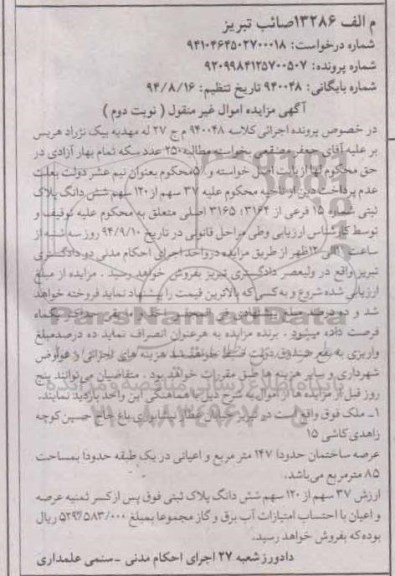 م الف ۱۳۲۸۶صائب تبریز
شماره درخواست: ۹۴۱۰۴۶۴۵۰۲۷۰۰۰۱۸
شماره پرونده: ۹۲۰۹۹۸۴۱۲۵۷۰۰۵۰۷
شماره بایگانی: ۹۴۰۰۴۸ تاریخ تنظیم: ۹۴/۸/۱۶
آگهی مزایده اموال غیر منقول ( نوبت دوم )
در خصوص پرونده اجرائی کلاسه ۹۴۰۰۴۸ م ج ۲۷ له مهدیه بیک نژراد هریس
بر علیه آقای جعفر بخواسته مطالبه ۲۵۰ عدد سکه تمام بهار آزادی در
حق محکوم لها از بابت اصل خواسته و محکوم بعنوان نیم عشر دولت بعلت
عدم پرداخت دین از ناحیه محکوم علیه ۳۷ سهم از ۱۲۰ سهم شش دانگ پلاک
ثبتی شماره ۱۵ فرعی از ۳۱۶۴؛ ۳۱۶۵ اصلی متعلق به محکوم علیه توقیف و
توسط کارشناس ارزیابی وطی مراحل قانونی در تاریخ ۹۴/۹/۱۰ روز سه شنبه از
ساعت الی ۱۲ظهر از طریق مزایده درواحد اجرای احکام مدنی دو دادگستری
تبریز واقع در ولیعصر دادگستری تبریز بفروش خواهد رسید . مزایده از مبلغ
ارزیابی شده شروع و به کسی که بالاترین قیمت را پیشنهاد نماید فروخته خواهد
شد و ده درصد مبلغ پیشنهادی فی المجلس یکماه
فرصت داده میشود . برنده مزایده به هرعنوان انصراف نماید ده درصدمبلغ
واریزی به نفع صندوق دولت ضبط خواهد شد هزینه های اجرائی و عوارض
شهرداری و سایر هزینه ها طبق مقررات خواهد بود . متقاضیان می توانند پنج
روز قبل از مزایده ها از اموال به شرح ذیل با هماهنگی این واحد بازدید نمایند.
۱ـ ملک فوق واقع است در باغ حاج حسین کوچه
زاهدی کاشی ۱۵
عرصه ساختمان حدودا ۱۴۷ متر مربع و اعیانی در یک طبقه حدودا بمساحت
۸۵ مترمربع می باشد.
ارزش ۳۷ سهم از ۱۲۰ سهم شش دانگ پلاک ثبتی فوق پس از کسر ثمنیه عرصه
و اعیان با احتساب امتیازات آب برق و گاز مجموعا بمبلغ ۵۲۹/۵۸۳/۰۰۰ ریال
بوده که بفروش خواهد رسید.
دادورز شعبه ۲۷ اجرای احکام مدنی - علمداری
ParsNamadData
پایگاه اطلاع رسانی مناقصه و مزایده